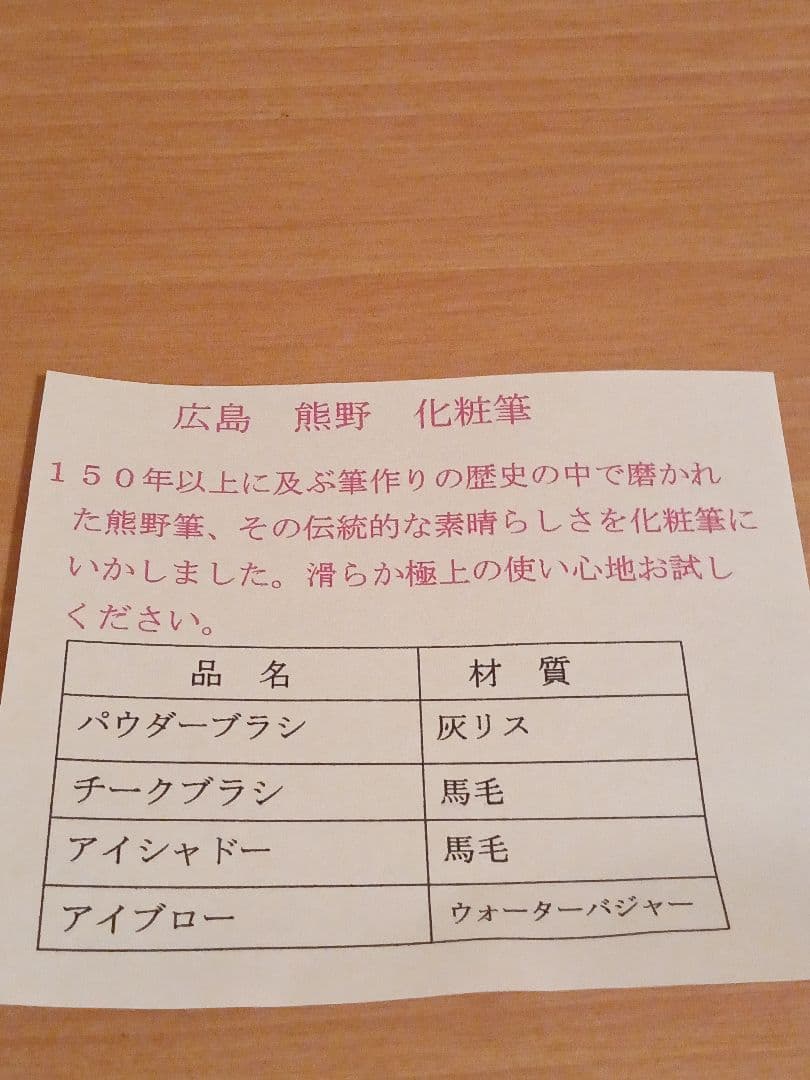 広島　熊野　化粧筆
１５０年以上に及ぶ筆作りの歴史の中で磨かれ
た熊野筆、その伝統的な素晴らしさを化粧筆に
いかしました。滑らか極上の使い心地お試し
ください。
品　名　材　質
パウダーブラシ　灰リス
チークブラシ　馬毛
アイシャドー　馬毛
アイブロー　ウォーターバジャー